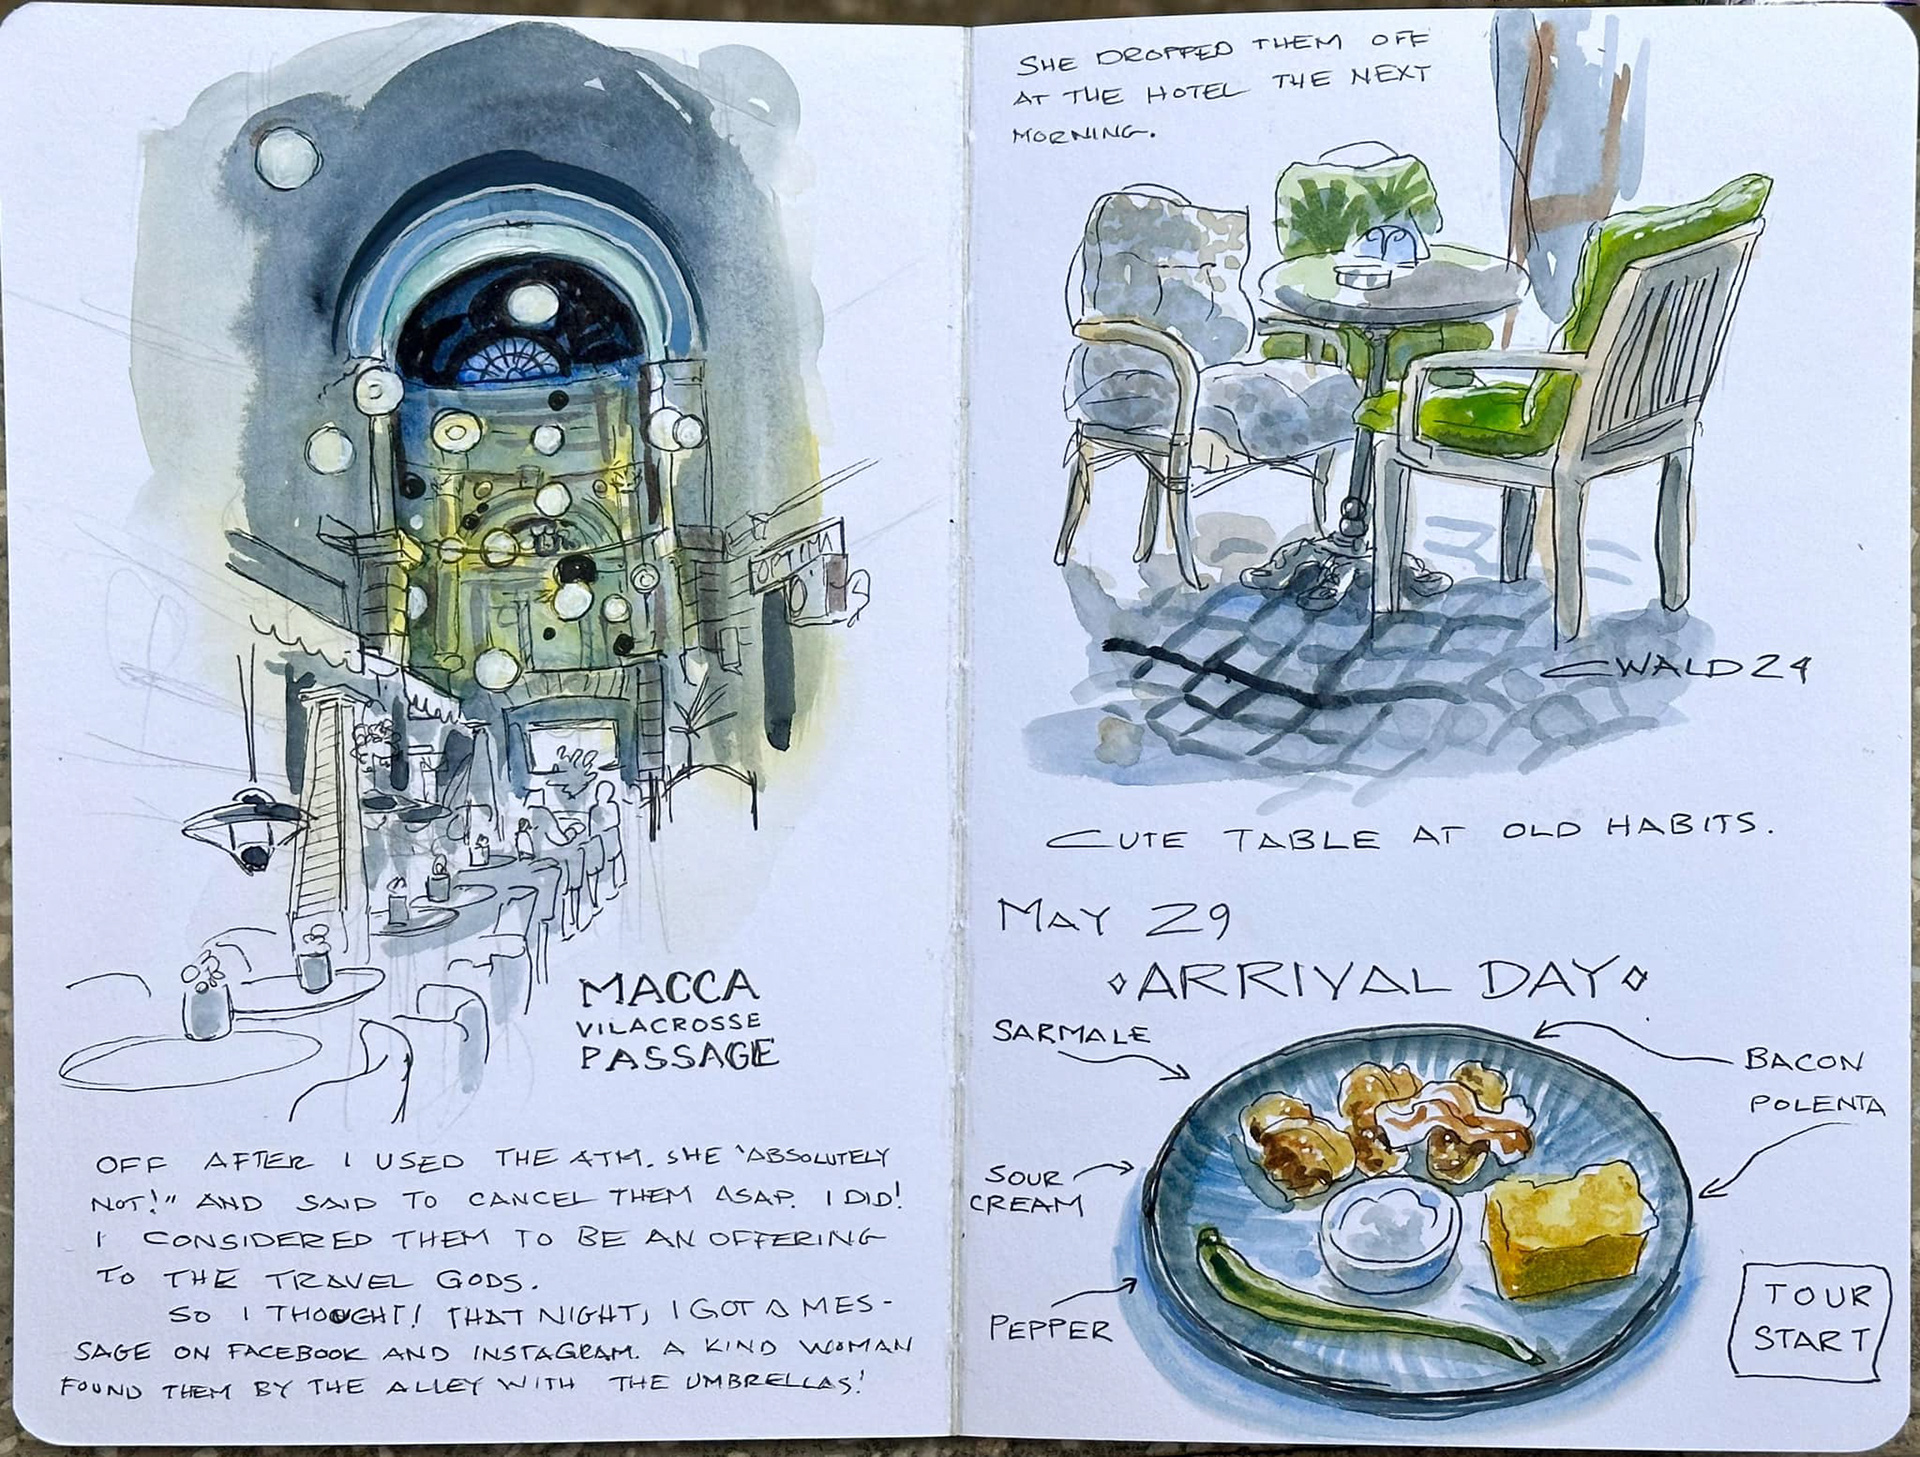 OPTIMA
MACCA
VILACROSSE
PASSAGE
OFF AFTER I USED THE ATM. SHE "ABSOLUTELY
NOT!" AND SAID TO CANCEL THEM ASAP. I DID!
I CONSIDERED THEM TO BE AN OFFERING
TO THE TRAVEL GODS.
SO I THOUGHT! THAT NIGHT, I GOT A MES-
SAGE ON FACEBOOK AND INSTAGRAM. A KIND WOMAN
FOUND THEM BY THE ALLEY WITH THE UMBRELLAS!
SHE DROPPED THEM OFF
AT THE HOTEL THE NEXT
MORNING.
CWALD24
CUTE TABLE AT OLD HABITS.
MAY 29
ARRIVAL DAY
SARMALE
BACON
POLENTA
SOUR
CREAM
PEPPER
TOUR
START